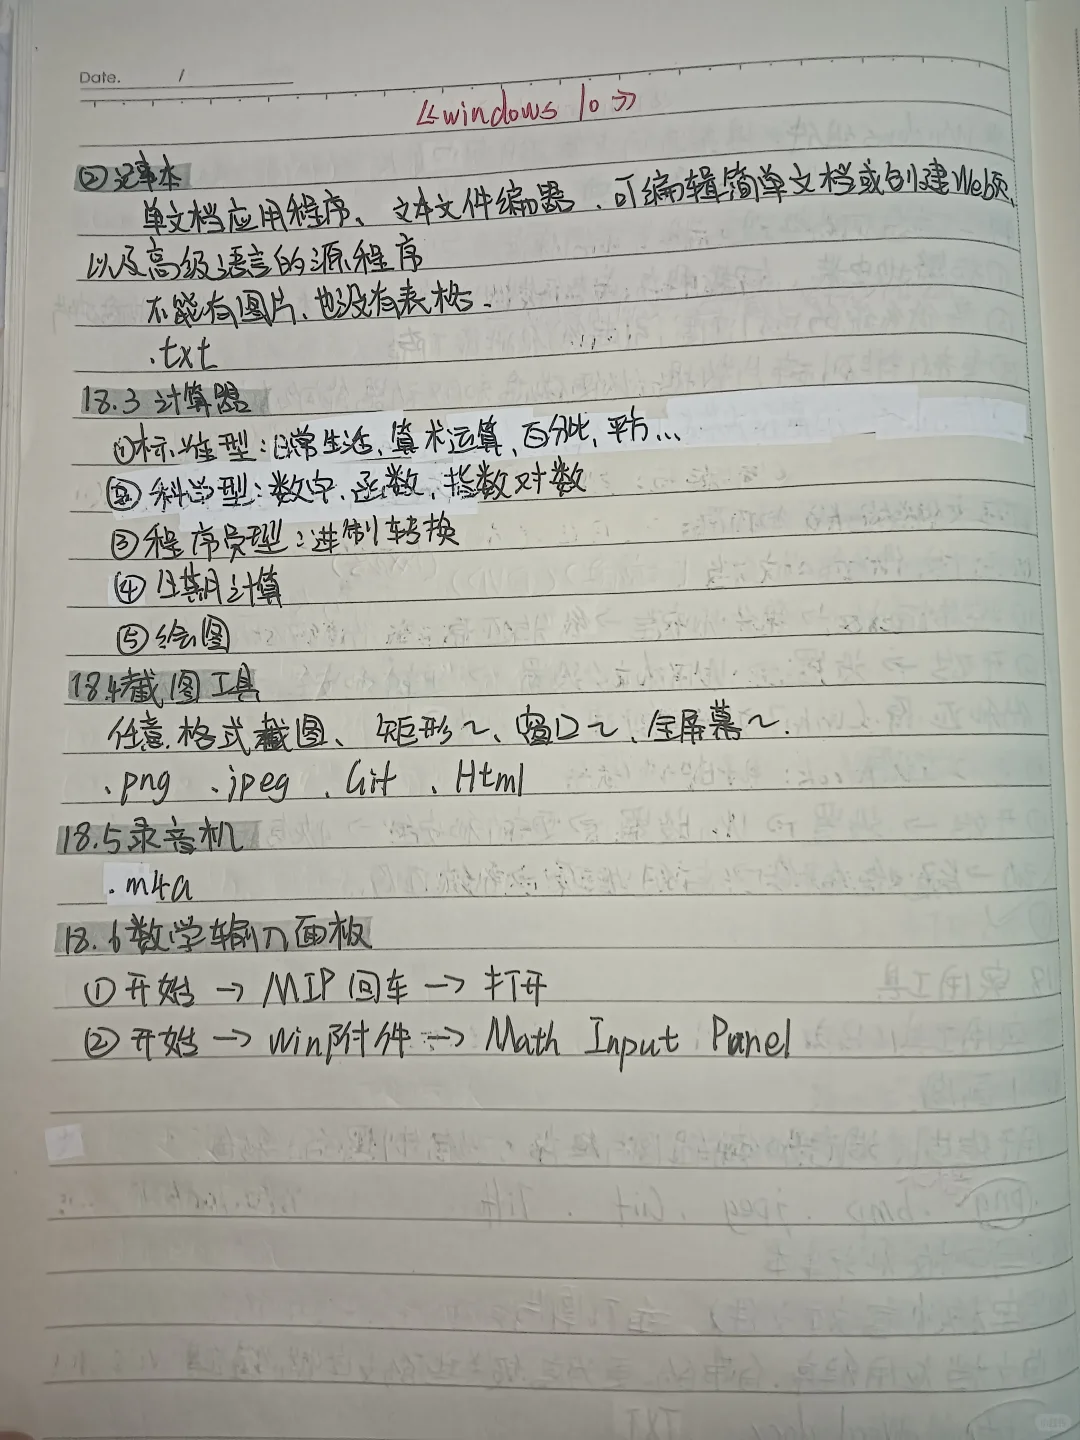 Date. /
《windows 10》
②记事本
单文档应用程序、文本文件编器、可编辑简单文档或创建Web页、
以及高级语言的源程序
不能有图片、也没有表格.
.txt
18.3 计算器
①标准型：日常生活、算术运算、百分比、平方...
②科学型：数字、函数、指数对数
③程序员型：进制转换
④日期计算
⑤绘图
18.4截图工具
任意格式截图、矩形～、窗口～、全屏幕～.
.png .jpeg .Gif .Html
18.5录音机
.m4a
18.6数学输入面板
①开始→MIP回车→打开
②开始→win附件→Math Input Panel